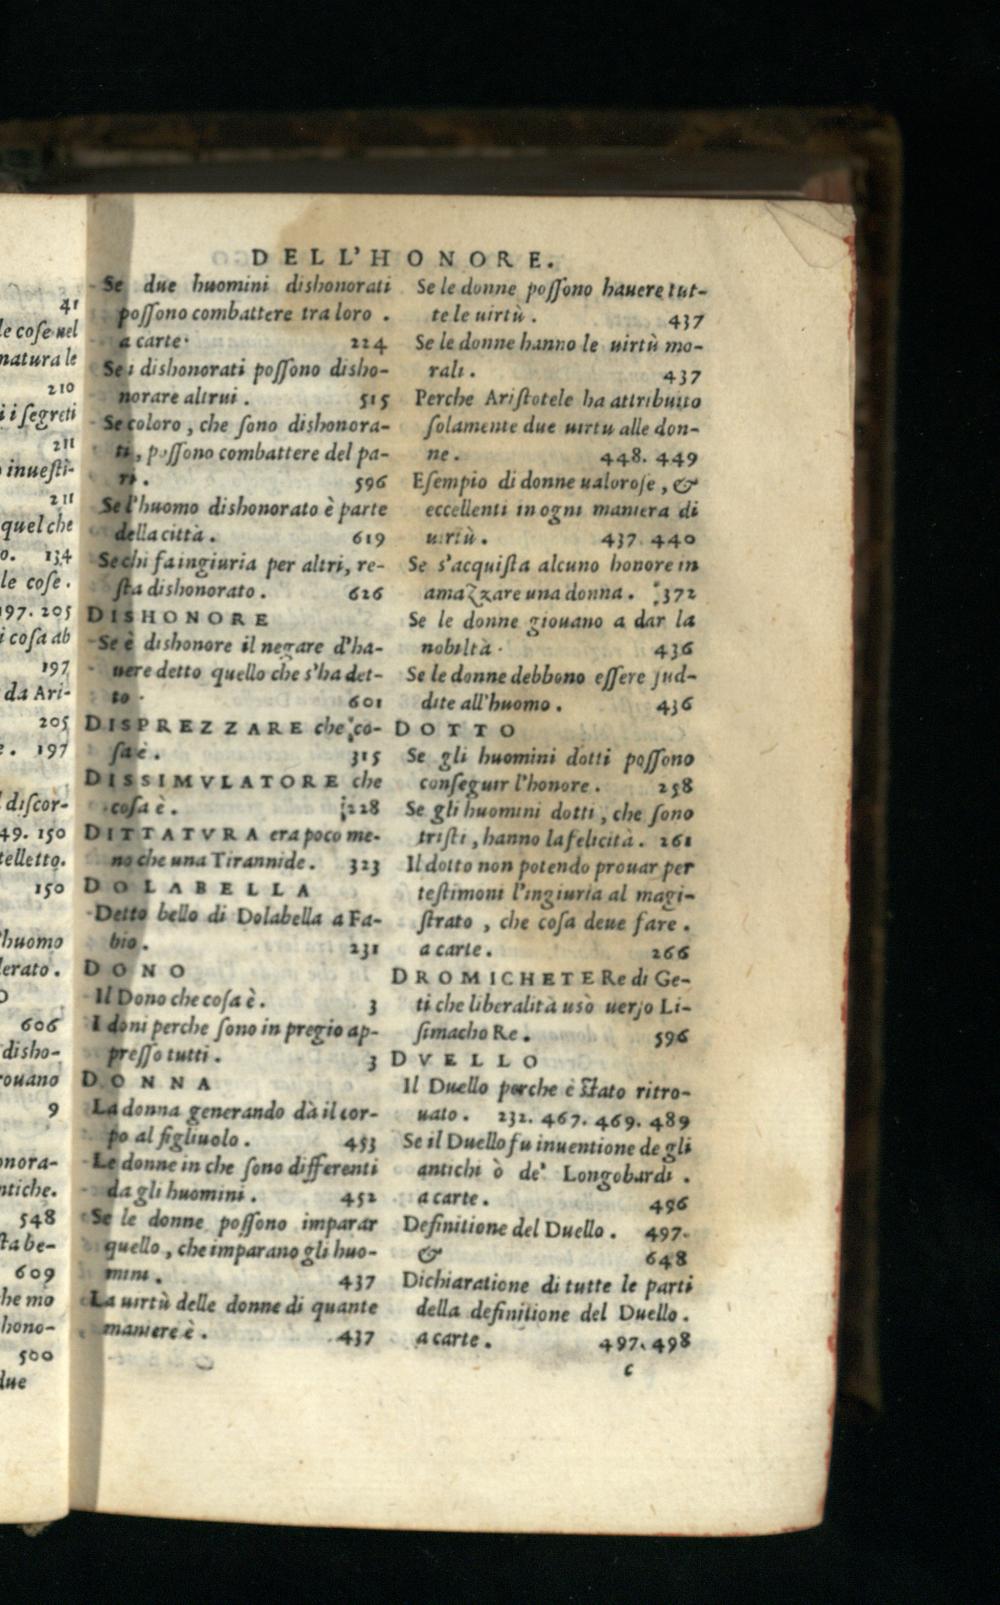 41
le cose nel
natura le
210
i i segreti
211
inuesti-
211
quel che
o. 134
le cose.
197. 205
i cosa ab
197
da Ari-
205
e. 197
discor-
49. 150
telletto.
150
'huomo
lerato.
O
606
disho-
rouano
9
onora-
ntiche.
548
sta be-
609
he mo
hono-
500
due
DELL'HONORE.
Se due huomini dishonorati
possono combattere tra loro.
a carte. 224
Se i dishonorati possono disho-
norare altrui. 515
Se coloro, che sono dishonora-
ti, possono combattere del pa-
ri. 596
Se l'huomo dishonorato è parte
della città. 619
Se chi fa ingiuria per altri, re-
sta dishonorato. 626
DISHONORE
Se è dishonore il negare d'ha-
uere detto quello che s'ha det-
to. 601
DISPREZZARE che co-
sa è. 315
DISSIMVLATORE che
cosa è. 228
DITTATVRA era poco me-
no che una Tirannide. 323
DOLABELLA
Detto bello di Dolabella a Fa-
bio. 231
DONO
Il Dono che cosa è. 3
I doni perche sono in pregio ap-
presso tutti. 3
DONNA
La donna generando dà il cor-
po al figliuolo. 453
Le donne in che sono differenti
da gli huomini. 452
Se le donne possono imparar
quello, che imparano gli huo-
mini. 437
La uirtù delle donne di quante
maniere è. 437
Se le donne possono hauere tut-
te le uirtù. 437
Se le donne hanno le uirtù mo-
rali. 437
Perche Aristotele ha attribuito
solamente due uirtu alle don-
ne. 448. 449
Esempio di donne ualorose, &
eccellenti in ogni maniera di
uirtù. 437. 440
Se s'acquista alcuno honore in
amazzare una donna. 372
Se le donne giouano a dar la
nobiltà. 436
Se le donne debbono essere sud-
dite all'huomo. 436
DOTTO
Se gli huomini dotti possono
conseguir l'honore. 258
Se gli huomini dotti, che sono
tristi, hanno la felicità. 261
Il dotto non potendo prouar per
testimoni l'ingiuria al magi-
strato, che cosa deue fare.
a carte. 266
DROMICHETE Re di Ge-
ti che liberalità usò uerso Li-
simacho Re. 596
DVELLO
Il Duello perche è stato ritro-
uato. 232. 467. 469. 489
Se il Duello fu inuentione de gli
antichi ò de' Longobardi.
a carte. 496
Definitione del Duello. 497.
& 648
Dichiaratione di tutte le parti
della definitione del Duello.
a carte. 497. 498
c